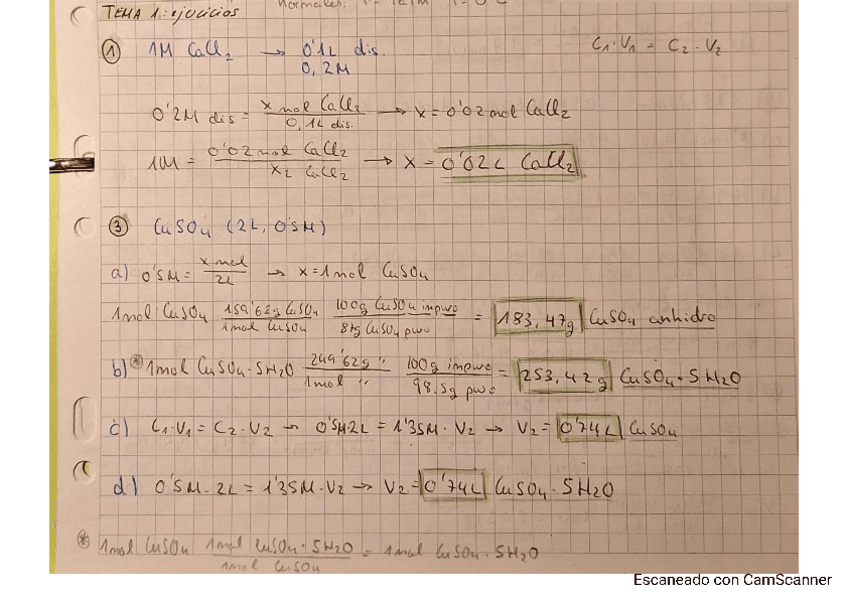 TEMA 1: ejercicios
normales:
① 1M CaCl₂ → 0'1L dis. C₁·V₁ = C₂·V₂
0,2M
0'2M dis = x mol CaCl₂ / 0,1L dis. → x = 0'02 mol CaCl₂
1M = 0'02 mol CaCl₂ / x L CaCl₂ → x = 0'02L CaCl₂
③ CuSO₄ (2L, 0'5M)
a) 0'5M = x mol / 2L → x = 1 mol CuSO₄
1mol CuSO₄ 159'62g CuSO₄ / 1mol CuSO₄ 100g CuSO₄ impuro / 87g CuSO₄ puro = 183,47g CuSO₄ anhidro
b) * 1mol CuSO₄·5H₂O 249'62g " / 1mol " 100g impuro / 98.5g puro = 253,42g CuSO₄·5H₂O
c) C₁·V₁ = C₂·V₂ → 0'5M·2L = 1'35M·V₂ → V₂ = 0'74L CuSO₄
d) 0'5M·2L = 1'35M·V₂ → V₂ = 0'74L CuSO₄·5H₂O
* 1mol CuSO₄ 1mol CuSO₄·5H₂O / 1mol CuSO₄ = 1mol CuSO₄·5H₂O
Escaneado con CamScanner